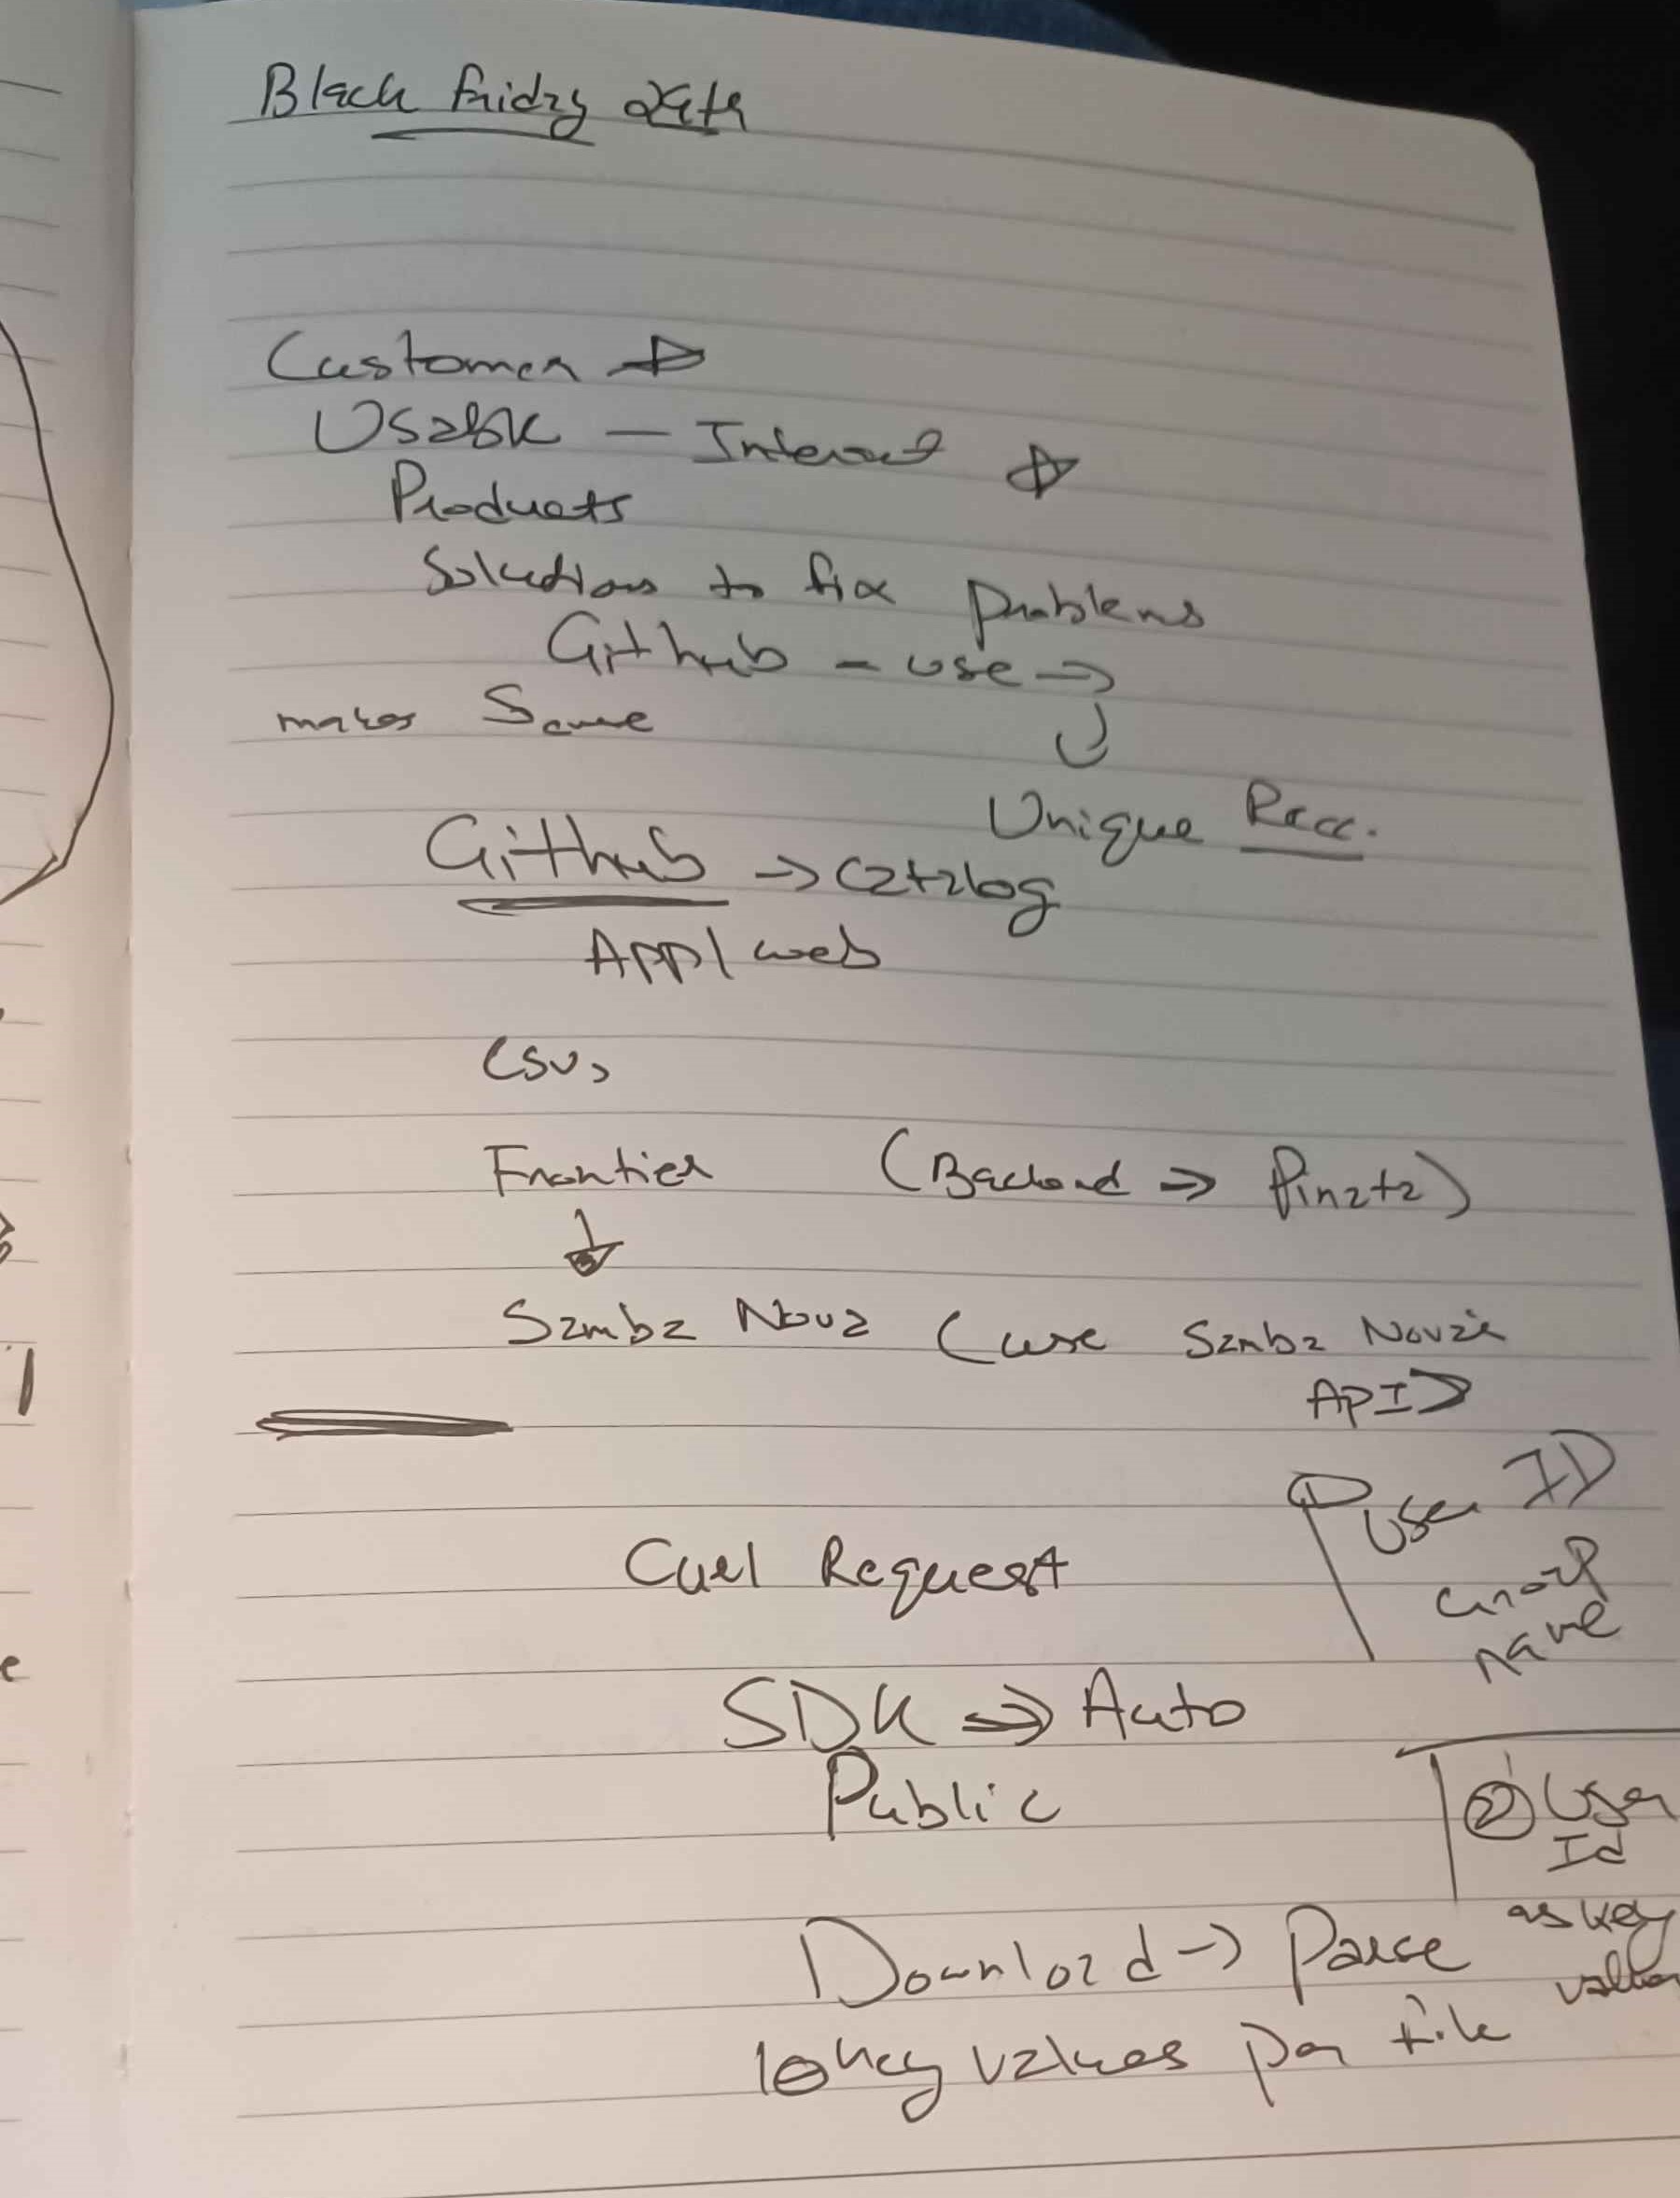 Black Friday 29th
Customer →
USabk - Internet →
Products
Solutions to fix Problems
Github - use →
makes Same
Unique Rec.
Github → Catalog
App/web
CSVs
Frontier (Backend ⇒ Pinata)
Samba Nova (use Samba Nova's
API)
① User ID
Group
name
Curl Request
SDK ⇒ Auto
Public
② User
Id
as key
value
Download → Parse
10 key values per file